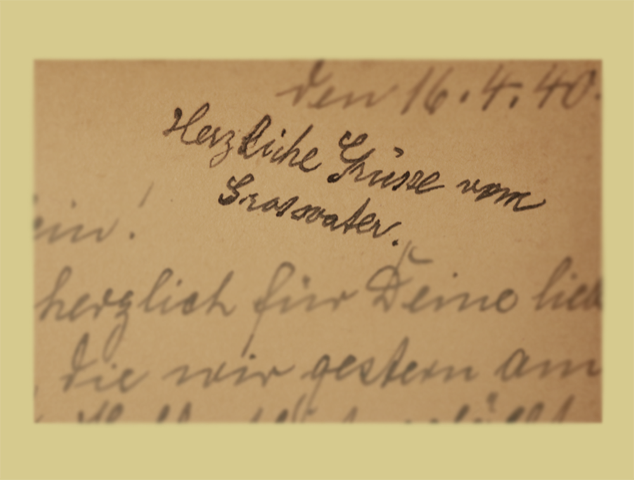 den 16.4.40.
Herzliche Grüsse vom
Grossvater.
ein!
herzlich für Deine lieb
die wir gestern am